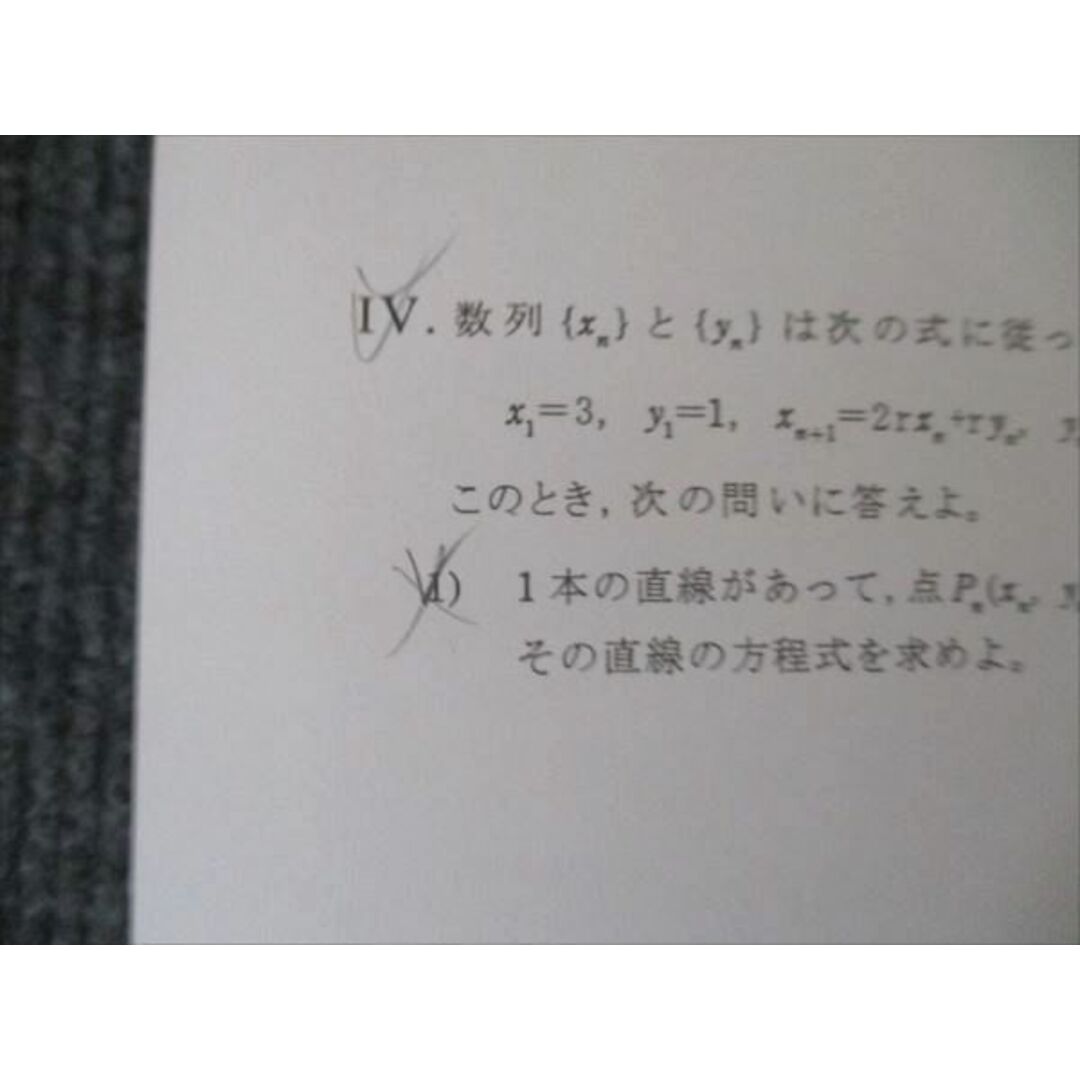 IV. 数列 {xₙ} と {yₙ} は次の式に従っ
x₁=3, y₁=1, xₙ₊₁=2rxₙ+ryₙ, y
このとき, 次の問いに答えよ。
1) 1本の直線があって, 点Pₙ(xₙ, y
その直線の方程式を求めよ。